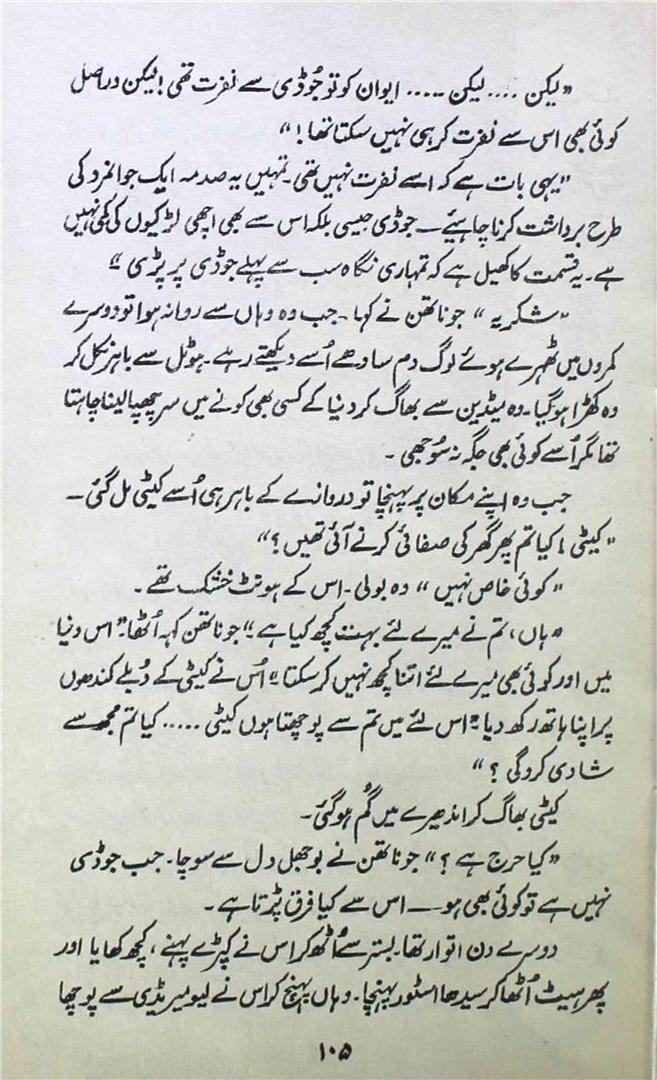 "لیکن .... لیکن ..... ایوان کو تو جُوڈی سے نفرت تھی! لیکن دراصل
کوئی بھی اس سے نفرت کر ہی نہیں سکتا تھا!"
"یہی بات ہے کہ اسے نفرت نہیں تھی۔ تمہیں یہ صدمہ ایک جوانمرد کی
طرح برداشت کرنا چاہیئے۔ جوڈی جیسی بلکہ اس سے بھی اچھی لڑکیوں کی کمی نہیں
ہے۔ یہ قسمت کا کھیل ہے کہ تمہاری نگاہ سب سے پہلے جوڈی پر پڑی"
"شکریہ" جوناتھن نے کہا۔ جب وہ وہاں سے روانہ ہوا تو دوسرے
کمروں میں ٹھہرے ہوئے لوگ دم سادھے اُسے دیکھتے رہے۔ ہوٹل سے باہر نکل کر
وہ کھڑا ہو گیا۔ وہ میڈین سے بھاگ کر دنیا کے کسی بھی کونے میں سر چھپا لینا چاہتا
تھا مگر اُسے کوئی بھی جگہ نہ سُوجھی۔
جب وہ اپنے مکان پر پہنچا تو دروازے کے باہر ہی اُسے کیٹی مل گئی۔
"کیٹی! کیا تم پھر گھر کی صفائی کرنے آئی تھیں؟"
"کوئی خاص نہیں" وہ بولی۔ اس کے ہونٹ خشک تھے۔
"ہاں، تم نے میرے لئے بہت کچھ کیا ہے" جوناتھن کہہ اُٹھا۔ "اس دنیا
میں اور کوئی بھی میرے لئے اتنا کچھ نہیں کر سکتا" اُس نے کیٹی کے دُبلے کندھوں
پر اپنا ہاتھ رکھ دیا "اس لئے میں تم سے پوچھتا ہوں کیٹی ..... کیا تم مجھ سے
شادی کرو گی؟"
کیٹی بھاگ کر اندھیرے میں گُم ہو گئی۔
"کیا حرج ہے؟" جوناتھن نے بوجھل دل سے سوچا۔ جب جوڈی
نہیں ہے تو کوئی بھی ہو — اس سے کیا فرق پڑتا ہے۔
دوسرے دن اتوار تھا۔ بستر سے اُٹھ کر اس نے کپڑے پہنے، کچھ کھایا اور
پھر ہیٹ اُٹھا کر سیدھا اسٹور پہنچا۔ وہاں پہنچ کر اس نے لیو میریڈی سے پوچھا
۱۰۵